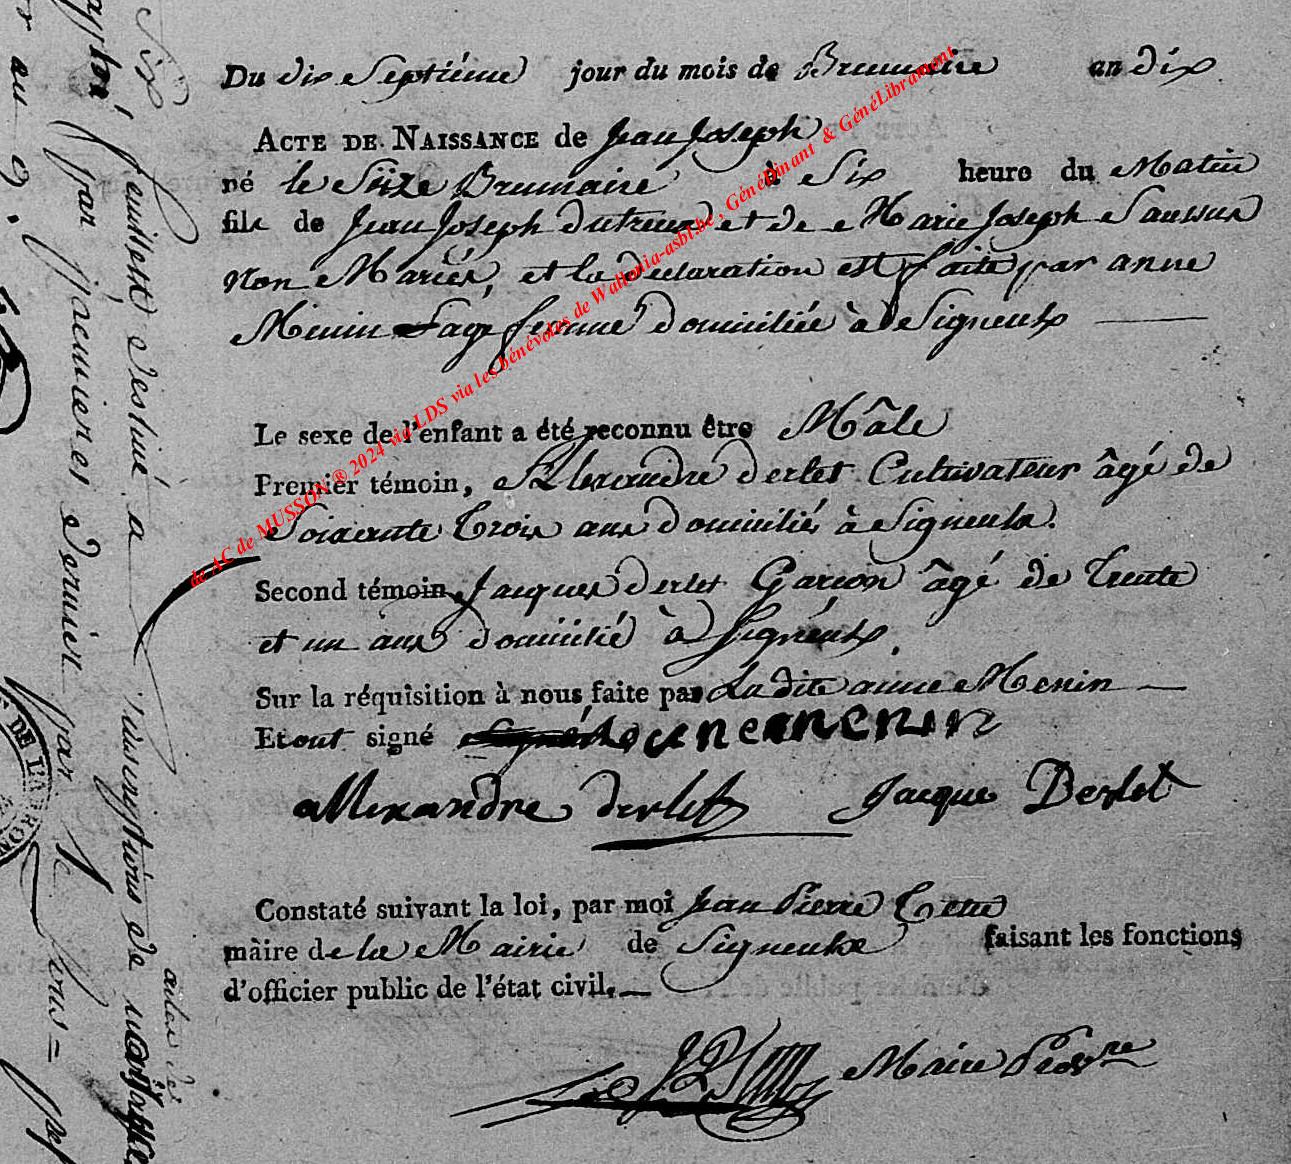 Du dix Septiéme jour du mois de Brumaire an dix
ACTE DE NAISSANCE de Jean Joseph
né le Sèize Brumaire à Six heure du Matin
fils de Jean Joseph dutrieux et de Marie Joseph Saussus
Non Mariés, et la declaration est faite par anne
Menin Sage femme domiciliée à Signeulx
Le sexe de l'enfant a été reconnu être Mâle
Premier témoin, Alexandre derlet Cultivateur âgé de
Soixante Trois ans domiciliés à Signeulx.
Second témoin, Jacques derlet Garcon âgé de Trente
et un ans domicilié à Signeulx.
Sur la réquisition à nous faite par La dite anne Menin
Et ont signé anne menin
allexandre derlet Jacque Derlet
Constaté suivant la loi, par moi Jean Pierre
màire de la Mairie de Signeulx faisant les fonctions
d'officier public de l'état civil.
Maire Prov.re
de AC de MUSSON ® 2024 via LDS via les bénévoles de Wallonia-asbl.be, GénéDinant & GénéLibramont
Six
feuillets destiné a inscriptions de
par premier et dernier par